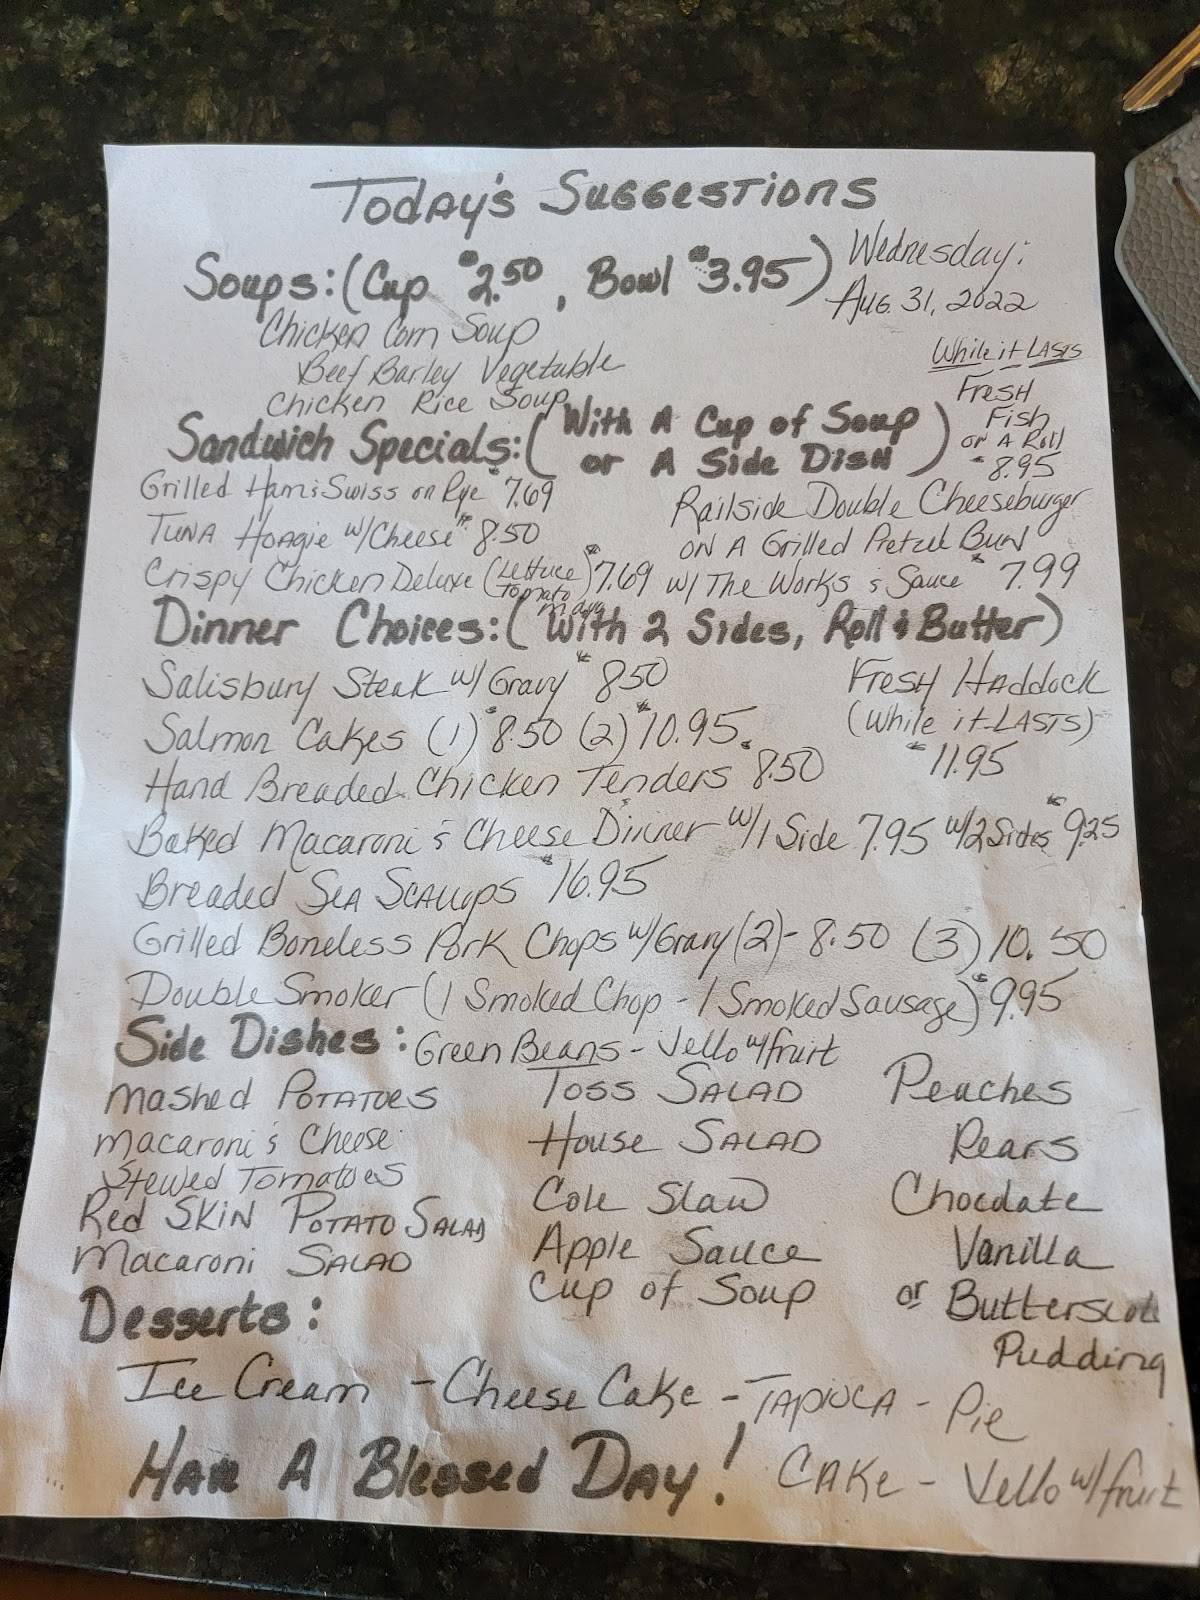 Today's Suggestions
Soups: (Cup $2.50, Bowl $3.95)
Wednesday:
Aug. 31, 2022
Chicken Corn Soup
Beef Barley Vegetable
Chicken Rice Soup
While it Lasts
Fresh
Fish
on A Roll
$8.95
Sandwich Specials: (With A Cup of Soup
or A Side Dish)
Grilled Ham & Swiss on Rye $7.69
Tuna Hoagie w/Cheese $8.50
Crispy Chicken Deluxe (Lettuce $7.69
Tomato
mayo
Railside Double Cheeseburger
on A Grilled Pretzel Bun
w/ The Works & Sauce $7.99
Dinner Choices: (With 2 Sides, Roll & Butter)
Salisbury Steak w/ Gravy $8.50
Salmon Cakes (1) $8.50 (2) $10.95
Hand Breaded Chicken Tenders $8.50
Fresh Haddock
(While it LASTS)
$11.95
Baked Macaroni & Cheese Dinner w/1 Side 7.95 w/2 Sides $9.25
Breaded Sea Scallops $16.95
Grilled Boneless Pork Chops w/Gravy (2) - 8.50 (3) 10.50
Double Smoker (1 Smoked Chop - 1 Smoked Sausage) $9.95
Side Dishes: Green Beans - Jello w/fruit
Mashed Potatoes
Macaroni & Cheese
Stewed Tomatoes
Red Skin Potato Salad
Macaroni Salad
Toss Salad
House Salad
Cole Slaw
Apple Sauce
Cup of Soup
Peaches
Pears
Chocolate
Vanilla
or Butterscotch
Pudding
Desserts:
Ice Cream - Cheese Cake - Tapioca - Pie
Cake - Jello w/fruit
Have A Blessed Day!